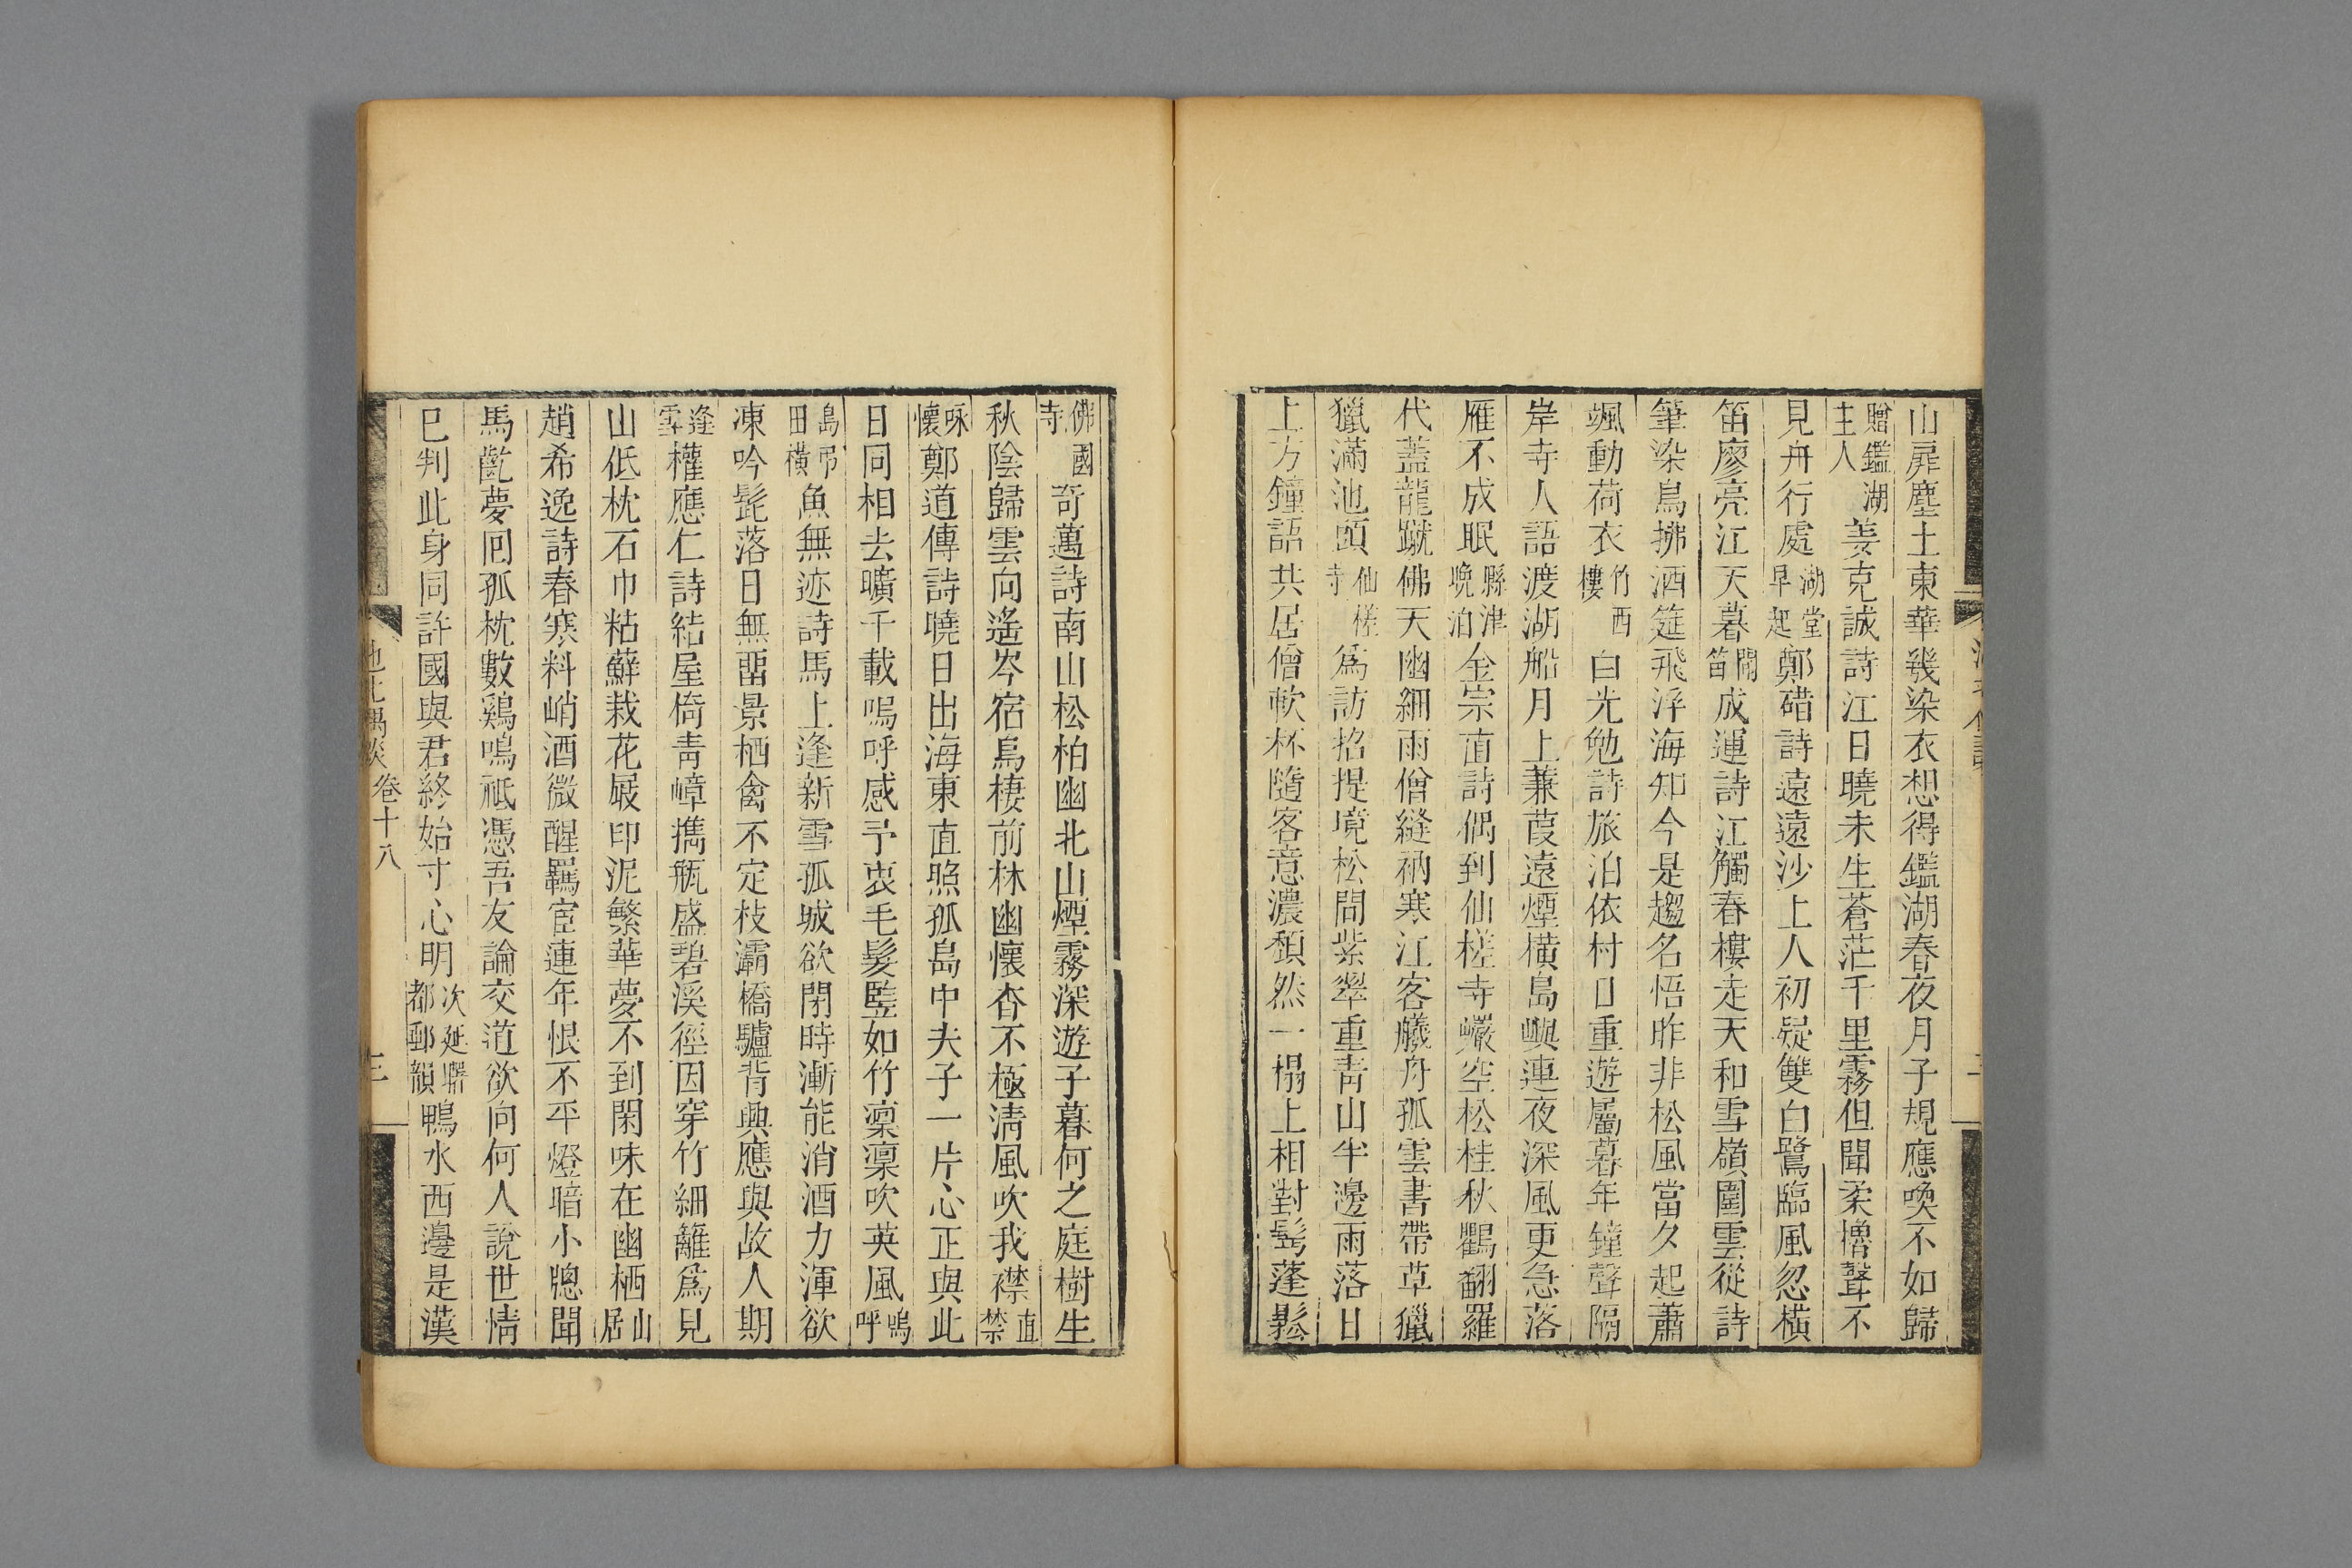 山扉塵土東華幾染衣想得鑑湖春夜月子規應喚不如歸
贈鑑湖主人姜克誠詩江日曉未生蒼茫千里霧但聞柔櫓聲不
見舟行處湖堂早起鄭碏詩遠遠沙上人初疑雙白鷺臨風忽橫
笛廖亮江天暮聞笛成運詩江觸春樓走天和雪嶺圍雲從詩
筆染鳥拂酒筵飛浮海知今是趨名悟昨非松風當久起蕭
颯動荷衣竹西樓白光勉詩旅泊依村口重遊屬暮年鐘聲隔
岸寺人語渡湖船月上蒹葭遠煙橫島嶼連夜深風更急落
雁不成眠縣津晚泊金宗直詩偶到仙槎寺巖空松桂秋鸛翻羅
代蓋龍蹴佛天幽細雨僧縫衲寒江客艤舟孤雲書帶草獵
獵滿池頭仙槎寺為訪招提境松間紫翠重青山半邊雨落日
上方鐘語共居僧軟杯隨客意濃頹然一榻上相對髩蓬鬆
佛國寺奇邁詩南山松柏幽北山煙霧深遊子暮何之庭樹生
秋陰歸雲向遙岑宿鳥棲前林幽懷杳不極清風吹我襟直禁
咏懷鄭道傳詩曉日出海東直照孤島中夫子一片心正與此
日同相去曠千載嗚呼感予衷毛髮豎如竹凜凜吹英風嗚呼
島弔田橫魚無迹詩馬上逢新雪孤城欲閉時漸能消酒力渾欲
凍吟髭落日無畱景栖禽不定枝灞橋驢背興應與故人期
逢雪權應仁詩結屋倚青嶂攜瓶盛碧溪徑因穿竹細籬為見
山低枕石巾粘蘚栽花屐印泥繁華夢不到閑味在幽栖山居
趙希逸詩春寒料峭酒微醒羈宦連年恨不平燈暗小牕聞
馬齕夢回孤枕數鷄鳴祗憑吾友論交道欲向何人說世情
已判此身同許國與君終始寸心明次延曙都郵韻鴨水西邊是漢
池北偶談 卷十八